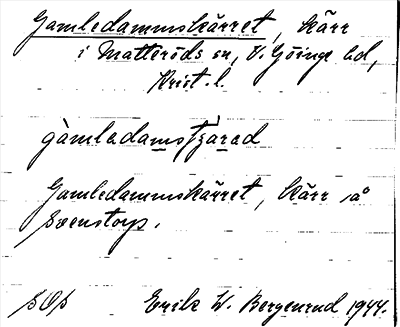 Gamledammskärret, kärr
i Matteröds sn, V. Göinge hd,
Krist. l.
Gamledammskärret, kärr å
Svenstorp.
sOp Erik W. Bergenrud 1944.